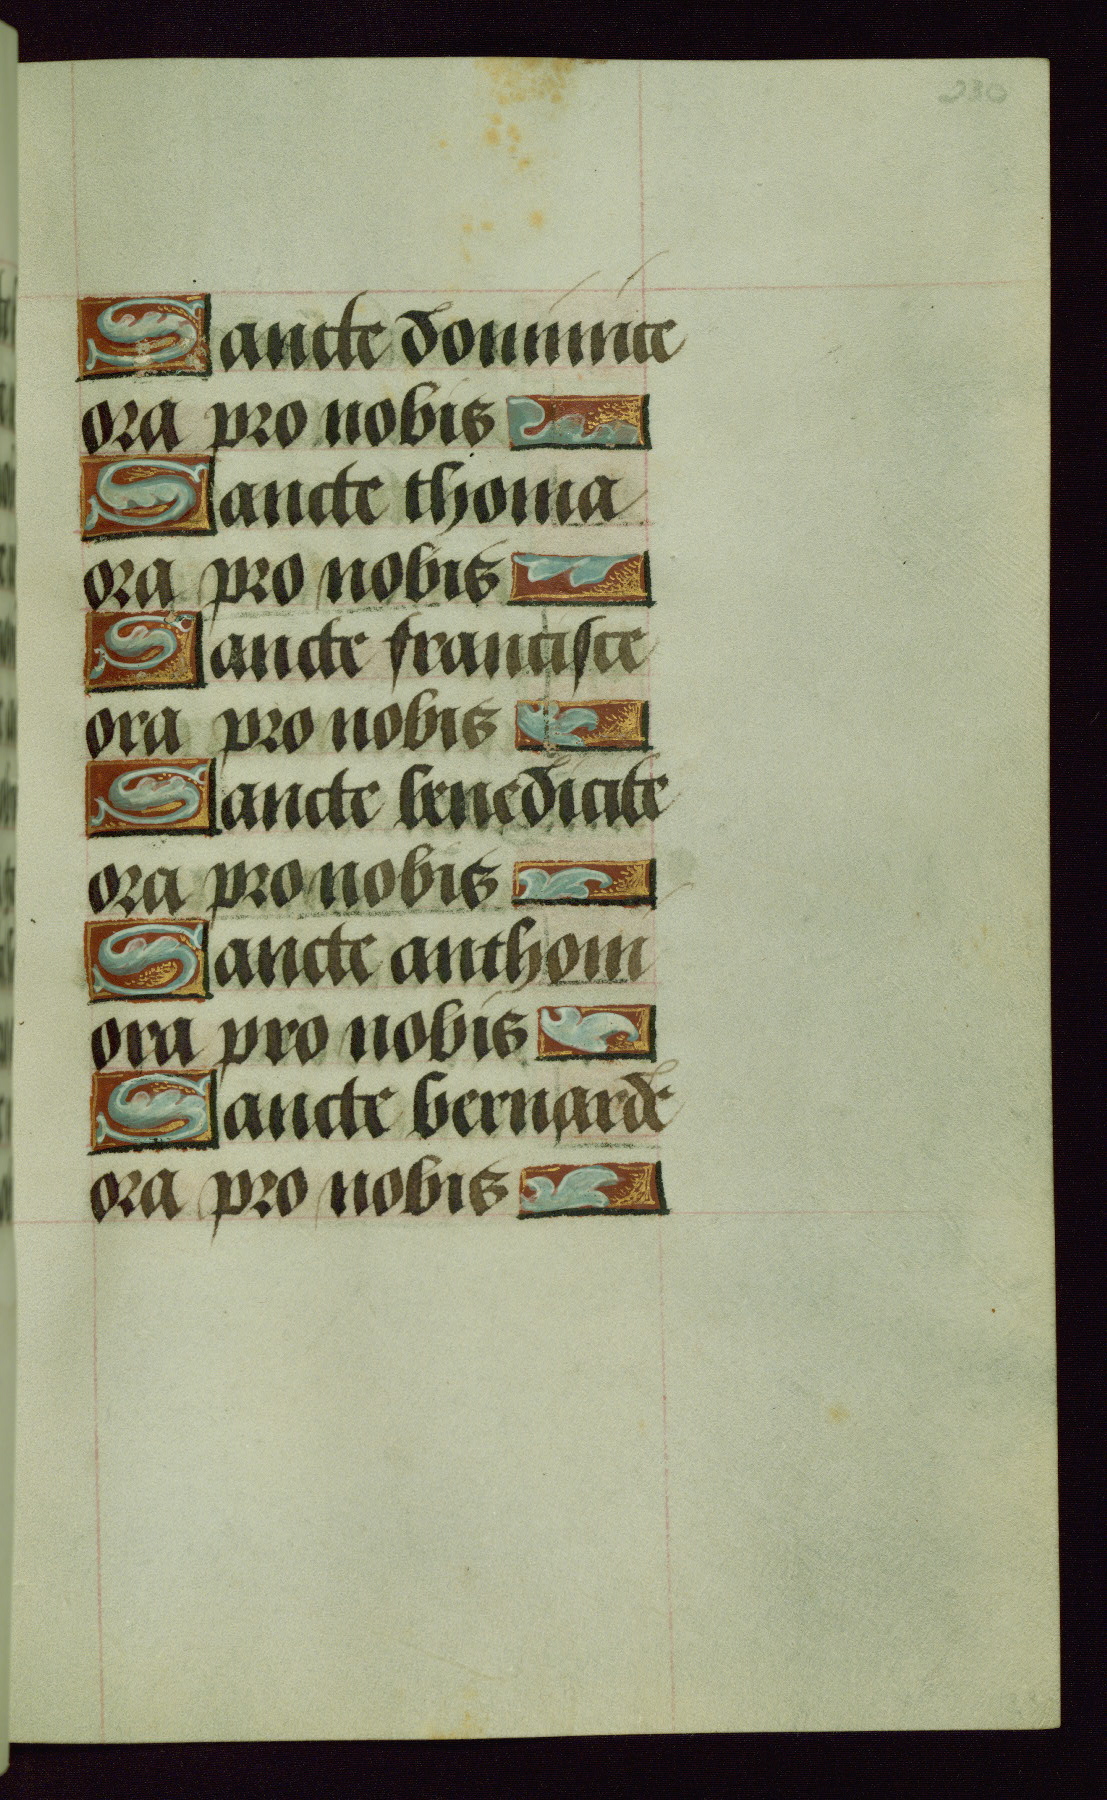 Sancte dominice
ora pro nobis
Sancte thoma
ora pro nobis
Sancte francisce
ora pro nobis
Sancte benedicite
ora pro nobis
Sancte anthoni
ora pro nobis
Sancte bernarde
ora pro nobis